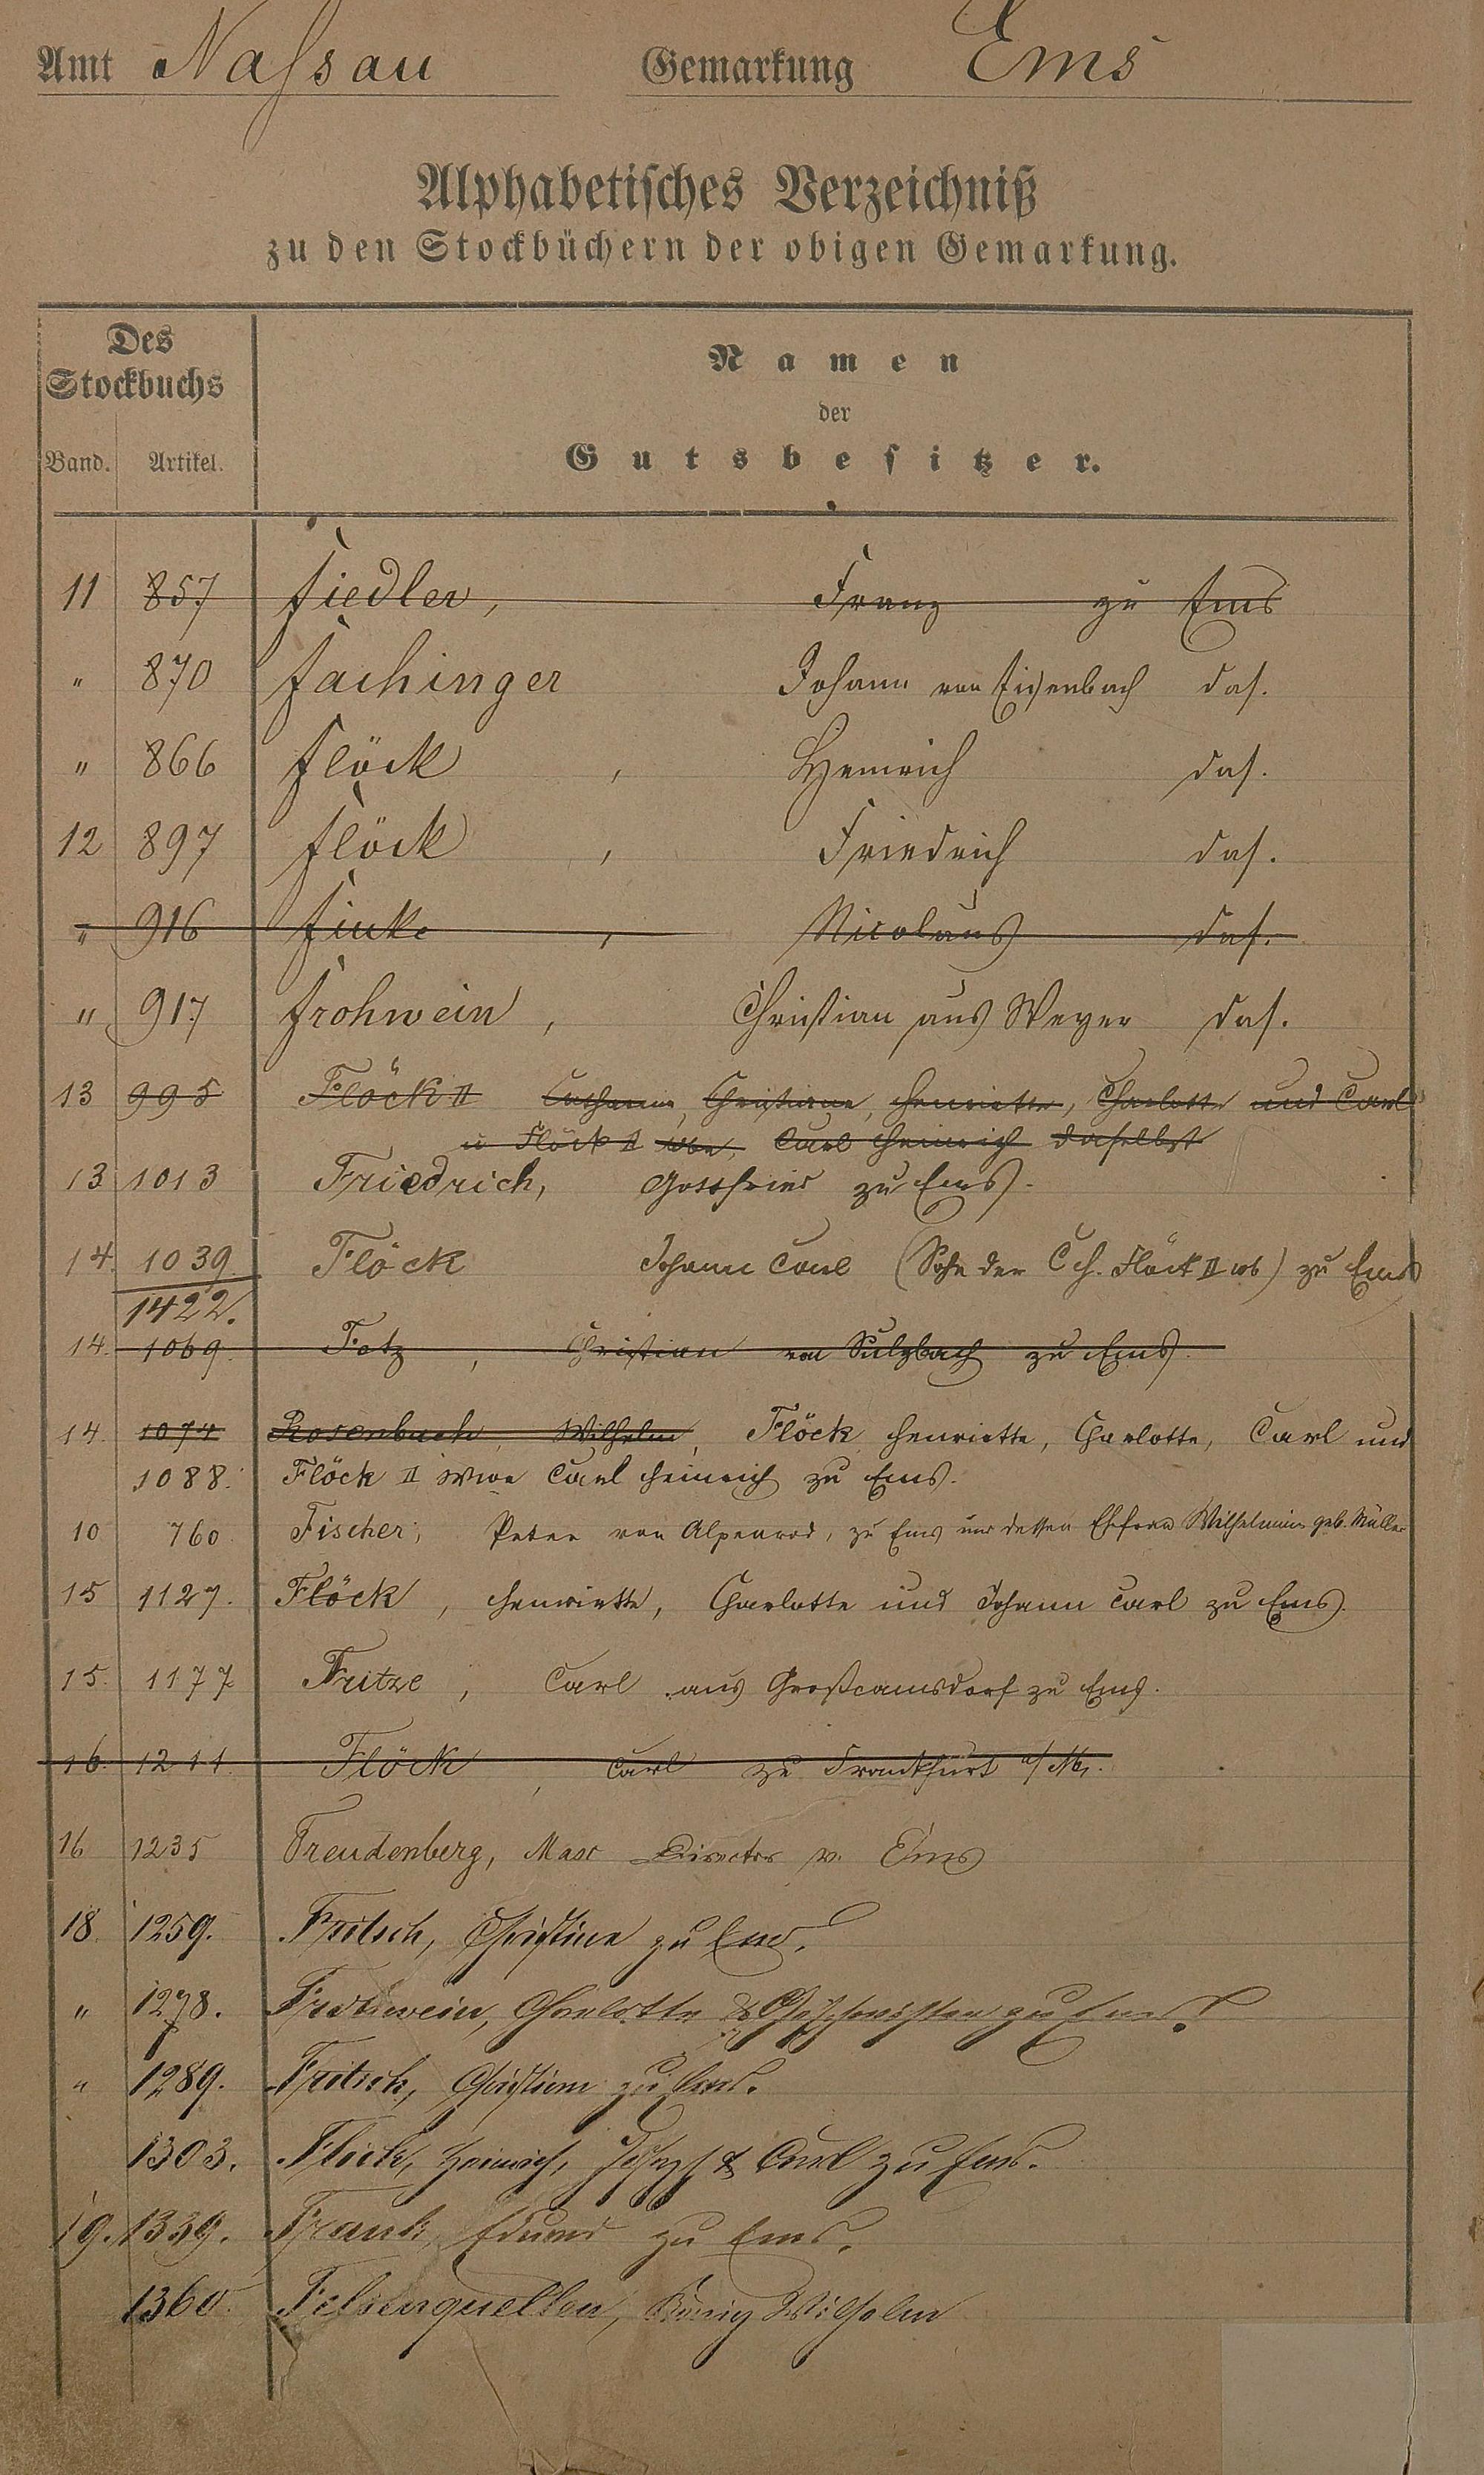 Amt Naſsau Gemarkung Ems
Alphabetisches Verzeichniß
zu den Stockbüchern der obigen Gemarkung.
Des
Stockbuchs
Band. Artikel.
Namen
der
Gutsbesitzer.
11 857 Fiedler, Franz zu Ems
" 870 Fachinger Johann von Eisenbach das.
" 866 Flöck , Heinrich das.
12 897 Flöck , Friedrich das.
" 916 Finke , Nicolaus das.
" 917 Frohwein , Christian aus Weyer das.
13 995 Flöck II Catharine, Christiane, Henriette, Charlotte und Carl
u Flöck II Carl Heinrich daselbst
13 1013 Friedrich, Gottfried zu Ems.
14. 1039 Flöck Johann Carl (Sohn der C. H. Flöck II wb) zu Ems
1422.
14. 1069. Fetz , Christian von Sulzbach zu Ems.
14. 1074 Rosenbach, Wilhelm, Flöck Henriette, Charlotte, Carl und
1088. Flöck II Wwe Carl Heinrich zu Ems.
10 760 Fischer, Peter von Alpenrod, zu Ems und dessen Ehefrau Wilhelmine geb. Müller
15 1127. Flöck , Henriette, Charlotte und Johann Carl zu Ems.
15. 1177 Fritze , Carl aus Großcamsdorf zu Ems.
16. 1211. Flöck , Carl zu Frankfurt a/M.
16 1235 Freudenberg, Max Director v. Ems
18. 1259. Fritsch, Christine zu Ems.
" 1278. Frohwein, Charlotte & Geschwister zu Ems.
" 1289. Fritsch, Christine zu Ems.
1303. Flöck, Heinrich, Joseph & Carl zu Ems.
19. 1339. Frank, Eduard zu Ems.
1360. Felsenquellen, König Wilhelm